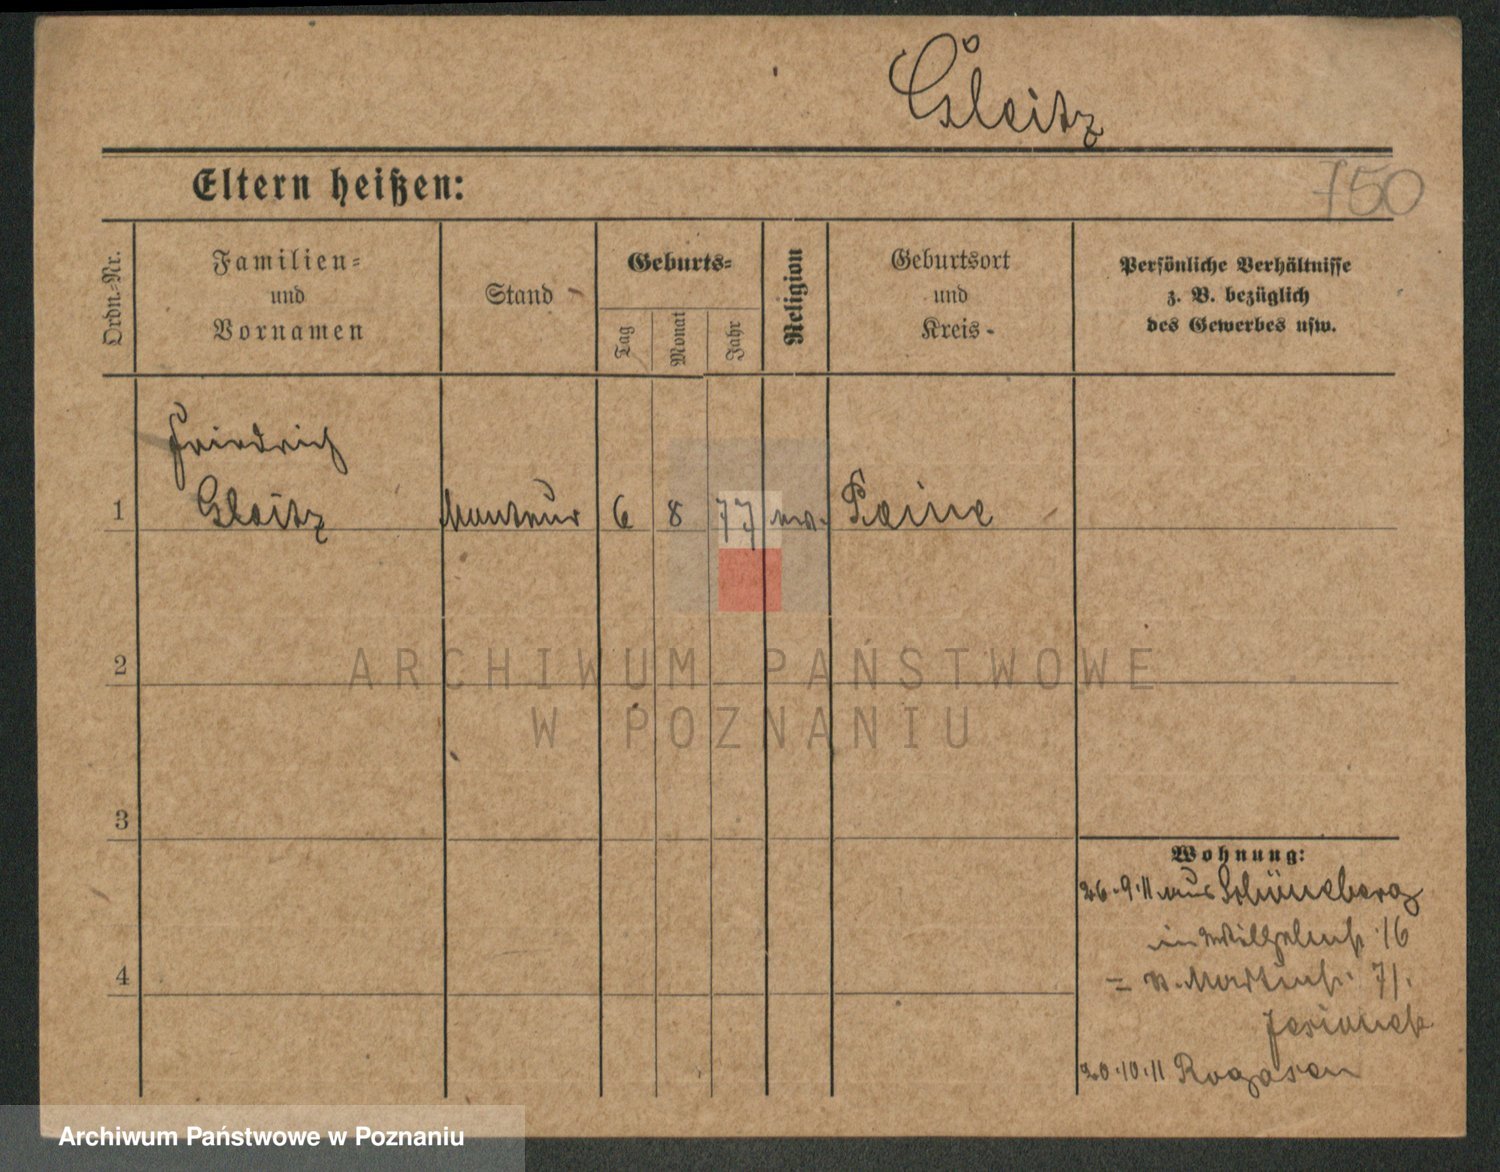 Gleitz
Eltern heißen:
750
Ordn.-Nr.
Familien-
und
Vornamen
Stand
Geburts-
Tag
Monat
Jahr
Religion
Geburtsort
und
Kreis
Persönliche Verhältnisse
z. B. bezüglich
des Gewerbes usw.
Friedrich
1 Gleitz Monteur 6 8 77 ev. Peine
2
3
4
Wohnung:
26.9.11 aus Schöneberg
16
= St. Martinstr. 71.
20.10.11 Rogasen
ARCHIWUM PAŃSTWOWE
W POZNANIU
Archiwum Państwowe w Poznaniu